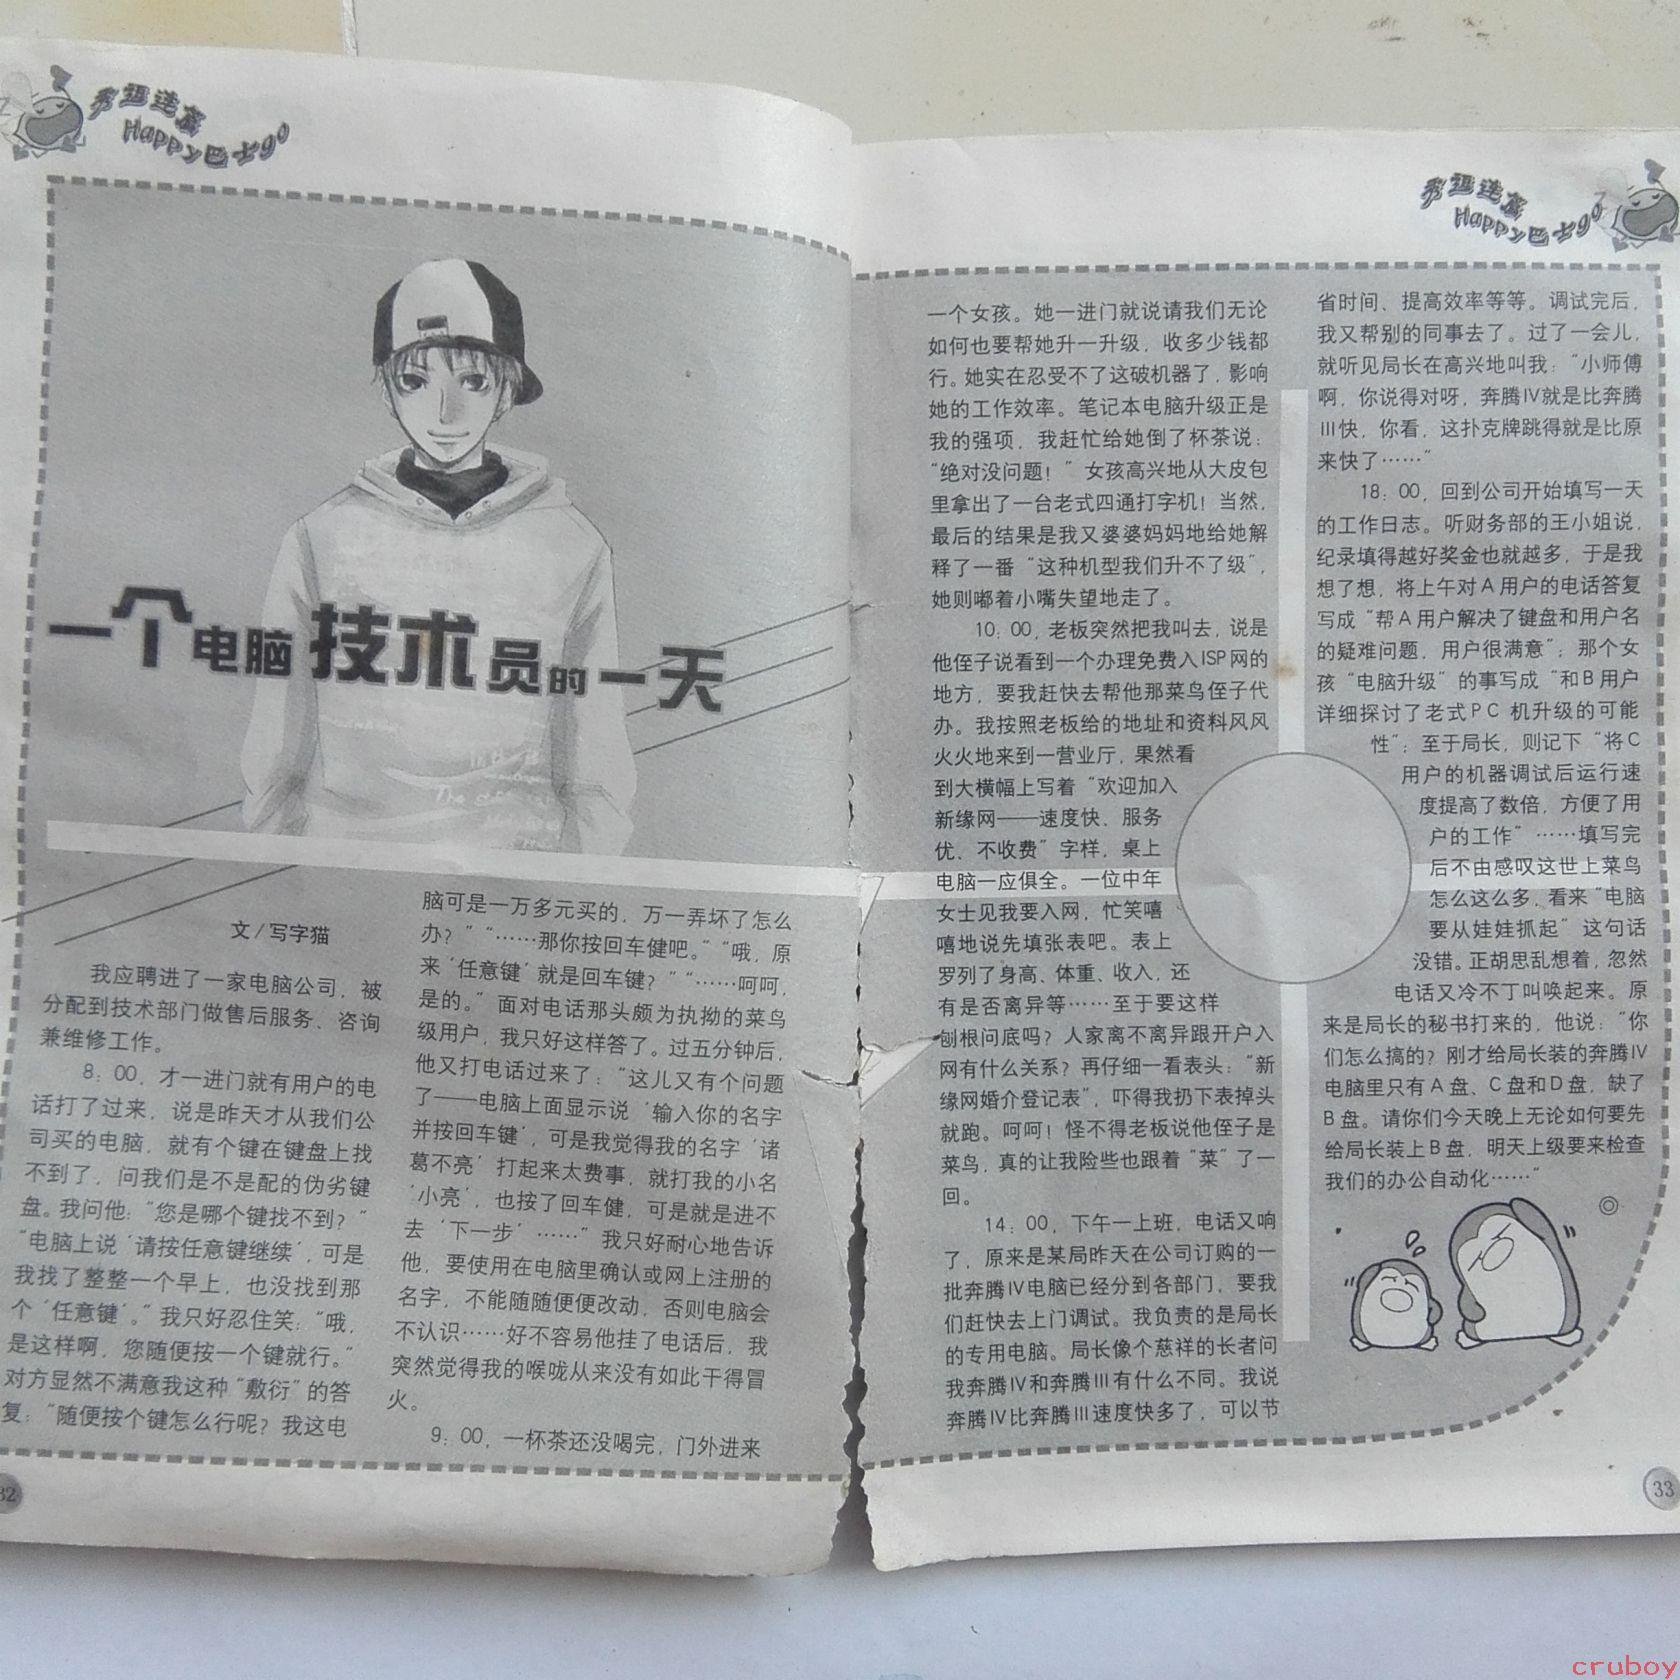 Happy巴士go
一个电脑技术员的一天
文/写字猫
我应聘进了一家电脑公司，被
分配到技术部门做售后服务、咨询
兼维修工作。
8：00，才一进门就有用户的电
话打了过来，说是昨天才从我们公
司买的电脑，就有个键在键盘上找
不到了，问我们是不是配的伪劣键
盘。我问他：“您是哪个键找不到？”
“电脑上说‘请按任意键继续’，可是
我找了整整一个早上，也没找到那
个‘任意键’。”我只好忍住笑：“哦，
是这样啊，您随便按一个键就行。”
对方显然不满意我这种“敷衍”的答
复：“随便按个键怎么行呢？我这电
脑可是一万多元买的，万一弄坏了怎么
办？”“……那你按回车健吧。”“哦，原
来‘任意键’就是回车键？”“……呵呵，
是的。”面对电话那头颇为执拗的菜鸟
级用户，我只好这样答了。过五分钟后，
他又打电话过来了：“这儿又有个问题
了——电脑上面显示说‘输入你的名字
并按回车键’，可是我觉得我的名字‘诸
葛不亮’打起来太费事，就打我的小名
‘小亮’，也按了回车健，可是就是进不
去‘下一步’……”我只好耐心地告诉
他，要使用在电脑里确认或网上注册的
名字，不能随随便便改动，否则电脑会
不认识……好不容易他挂了电话后，我
突然觉得我的喉咙从来没有如此干得冒
火。
9：00，一杯茶还没喝完，门外进来
32
Happy巴士go
一个女孩。她一进门就说请我们无论
如何也要帮她升一升级，收多少钱都
行。她实在忍受不了这破机器了，影响
她的工作效率。笔记本电脑升级正是
我的强项，我赶忙给她倒了杯茶说：
“绝对没问题！”女孩高兴地从大皮包
里拿出了一台老式四通打字机！当然，
最后的结果是我又婆婆妈妈地给她解
释了一番“这种机型我们升不了级”，
她则嘟着小嘴失望地走了。
10：00，老板突然把我叫去，说是
他侄子说看到一个办理免费入ISP网的
地方，要我赶快去帮他那菜鸟侄子代
办。我按照老板给的地址和资料风风
火火地来到一营业厅，果然看
到大横幅上写着“欢迎加入
新缘网——速度快、服务
优、不收费”字样，桌上
电脑一应俱全。一位中年
女士见我要入网，忙笑嘻
嘻地说先填张表吧。表上
罗列了身高、体重、收入，还
有是否离异等……至于要这样
刨根问底吗？人家离不离异跟开户入
网有什么关系？再仔细一看表头：“新
缘网婚介登记表”，吓得我扔下表掉头
就跑。呵呵！怪不得老板说他侄子是
菜鸟，真的让我险些也跟着“菜”了一
回。
14：00，下午一上班，电话又响
了，原来是某局昨天在公司订购的一
批奔腾Ⅳ电脑已经分到各部门，要我
们赶快去上门调试。我负责的是局长
的专用电脑。局长像个慈祥的长者问
我奔腾Ⅳ和奔腾Ⅲ有什么不同。我说
奔腾Ⅳ比奔腾Ⅲ速度快多了，可以节
省时间、提高效率等等。调试完后，
我又帮别的同事去了。过了一会儿，
就听见局长在高兴地叫我：“小师傅
啊，你说得对呀，奔腾Ⅳ就是比奔腾
Ⅲ快，你看，这扑克牌跳得就是比原
来快了……”
18：00，回到公司开始填写一天
的工作日志。听财务部的王小姐说，
纪录填得越好奖金也就越多，于是我
想了想，将上午对A用户的电话答复
写成“帮A用户解决了键盘和用户名
的疑难问题，用户很满意”；那个女
孩“电脑升级”的事写成“和B用户
详细探讨了老式PC 机升级的可能
性”；至于局长，则记下“将C
用户的机器调试后运行速
度提高了数倍，方便了用
户的工作”……填写完
后不由感叹这世上菜鸟
怎么这么多，看来“电脑
要从娃娃抓起”这句话
没错。正胡思乱想着，忽然
电话又冷不丁叫唤起来。原
来是局长的秘书打来的，他说：“你
们怎么搞的？刚才给局长装的奔腾Ⅳ
电脑里只有A盘、C盘和D盘，缺了
B盘。请你们今天晚上无论如何要先
给局长装上B盘，明天上级要来检查
我们的办公自动化……”
33
cruboy